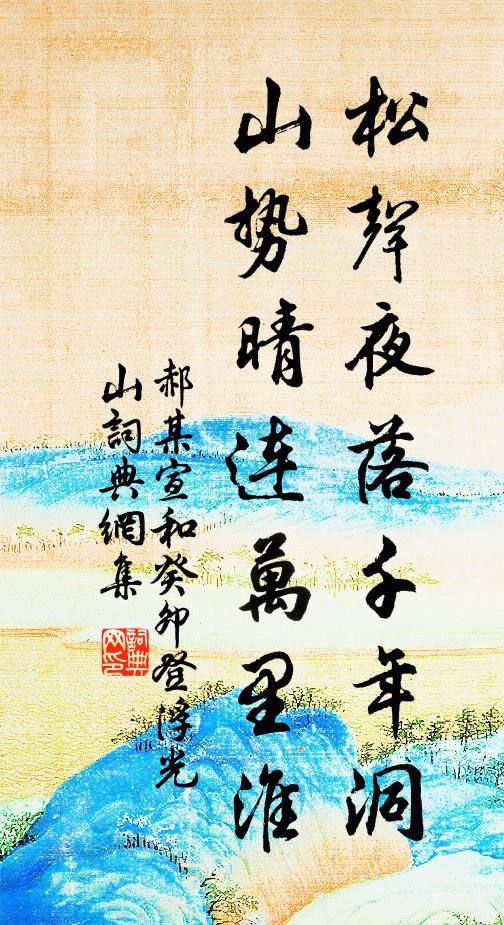 松聲夜落千年洞
山势晴连萬里淮
郝某宣和癸卯登浮光
山詞典網集
詞典
网印